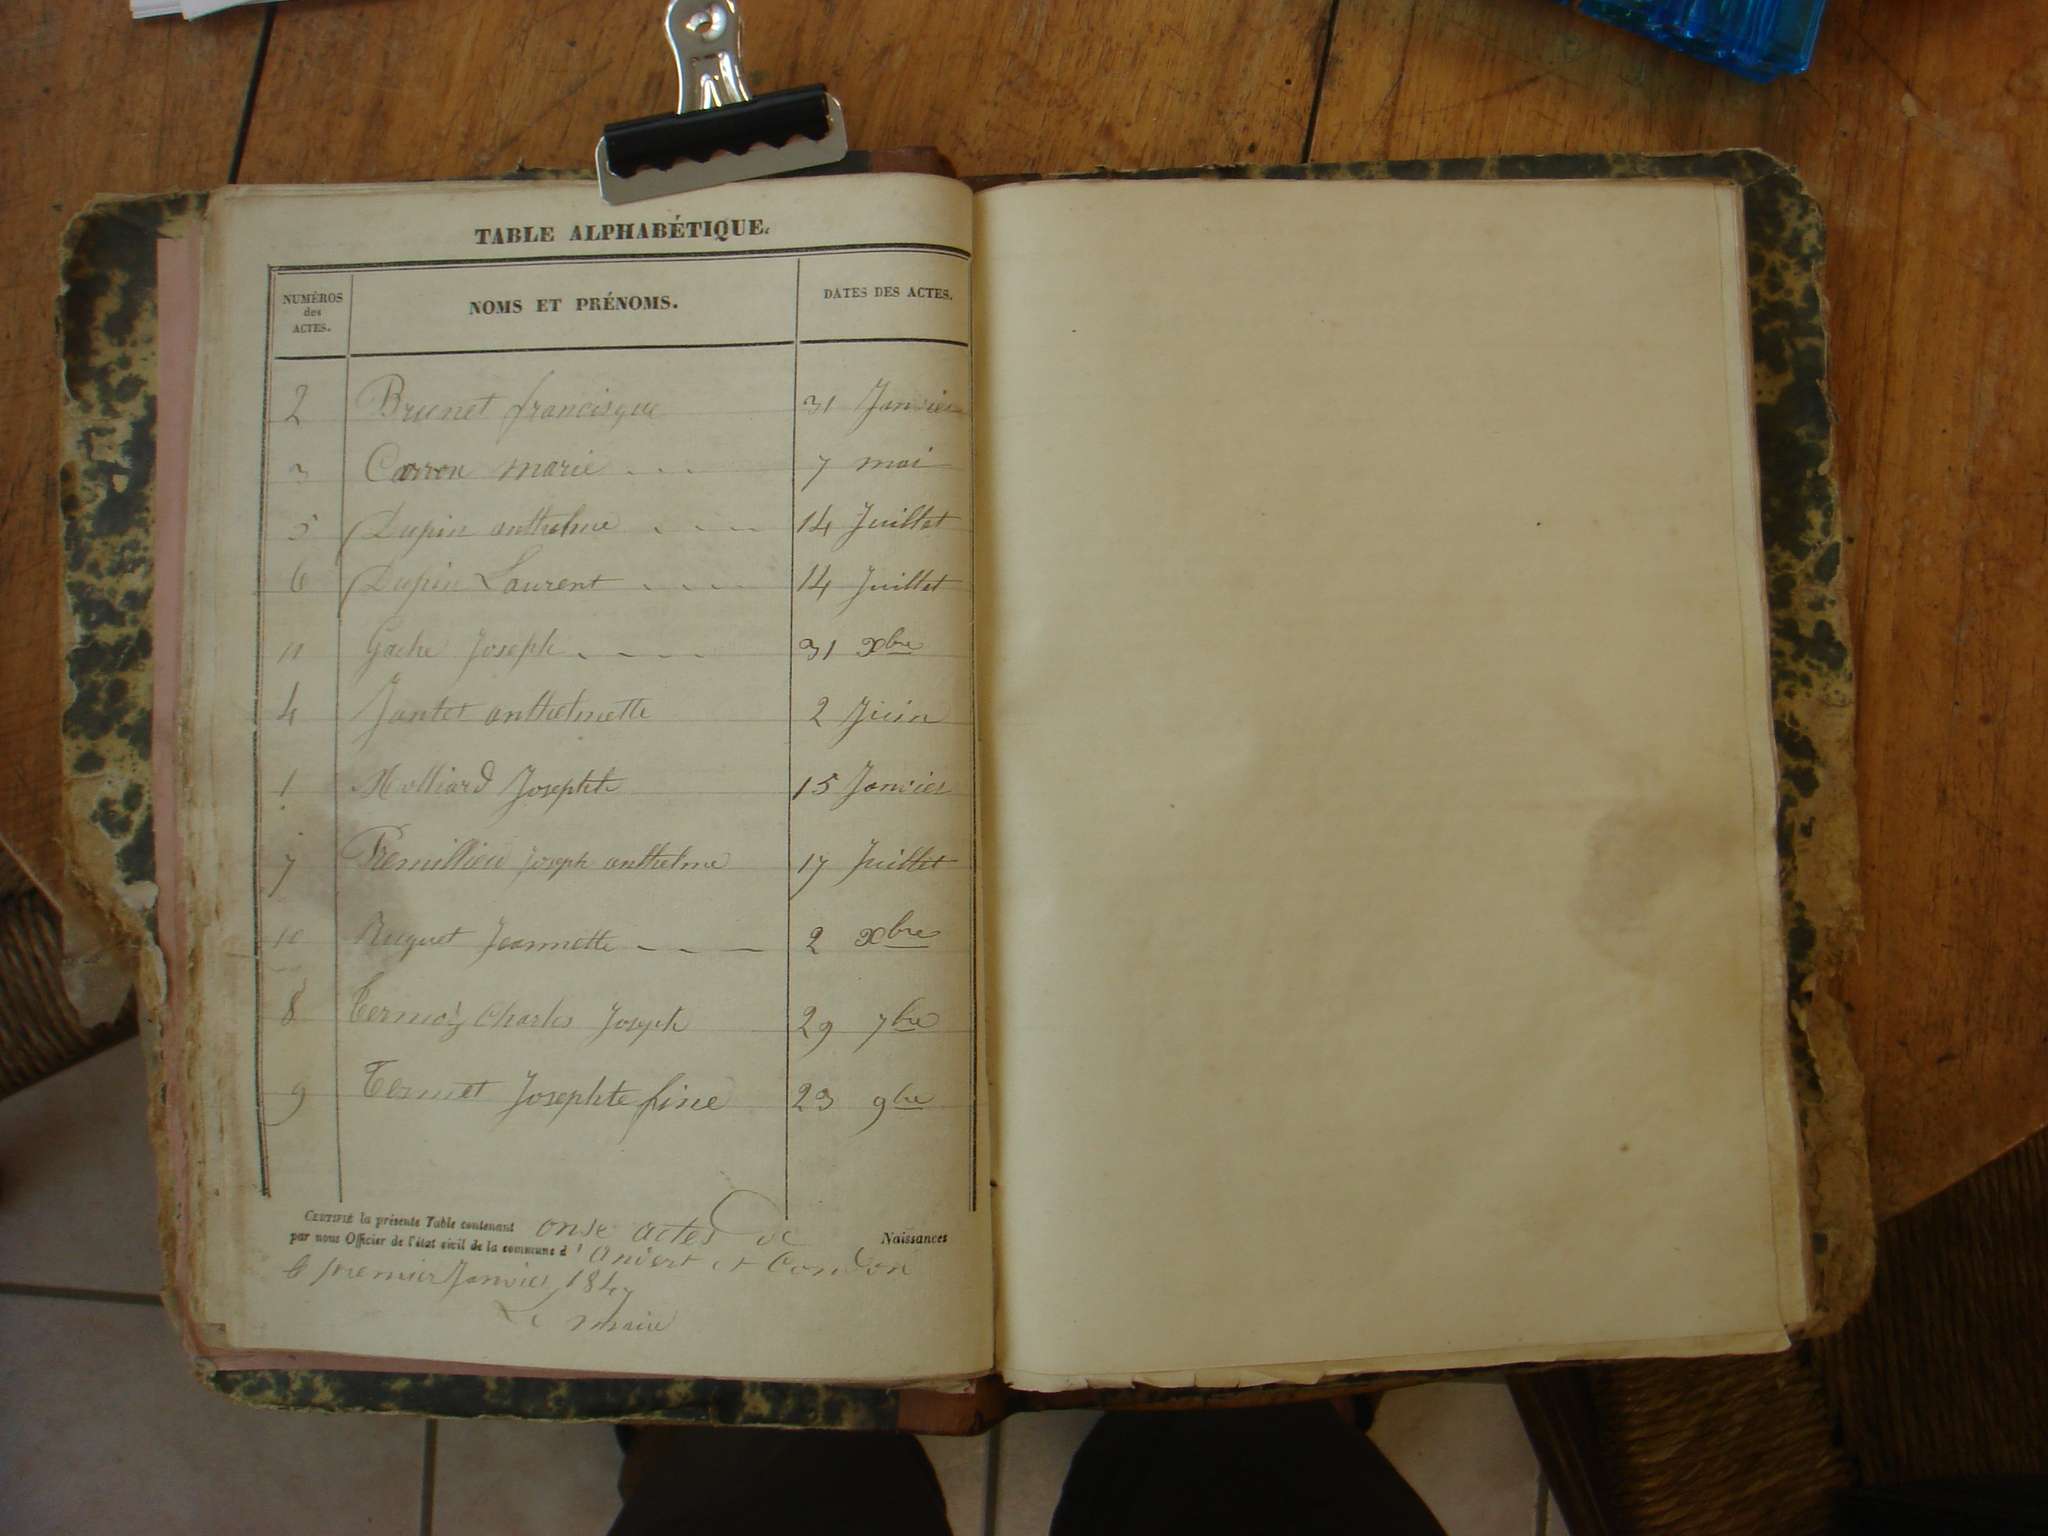 TABLE ALPHABÉTIQUE.
NUMÉROS des ACTES. NOMS ET PRÉNOMS. DATES DES ACTES.
2 Brunet francisque 31 Janvier
3 Carron marie 7 mai
5 Dupin anthelme 14 Juillet
6 Dupin Laurent 14 Juillet
11 Gache Joseph 31 Xbre
4 Jantet anthelmette 2 Juin
1 Molliard Josephte 15 Janvier
7 Premillieu Joseph anthelme 17 Juillet
10 Ruguet Jeannette 2 Xbre
8 Termoz Charles Joseph 29 7bre
9 Termet Josephte fine 23 9bre
CERTIFIÉ la présente Table contenant onse actes de Naissances
par nous Officier de l'état civil de la commune d' andert et Condon
le premier Janvier 1847
Le maire